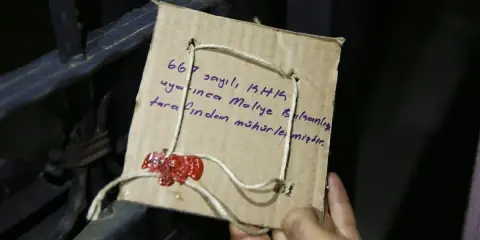 667 sayılı KHK
uyarınca Maliye Bakanlığı
tarafından mühürlenmiştir.